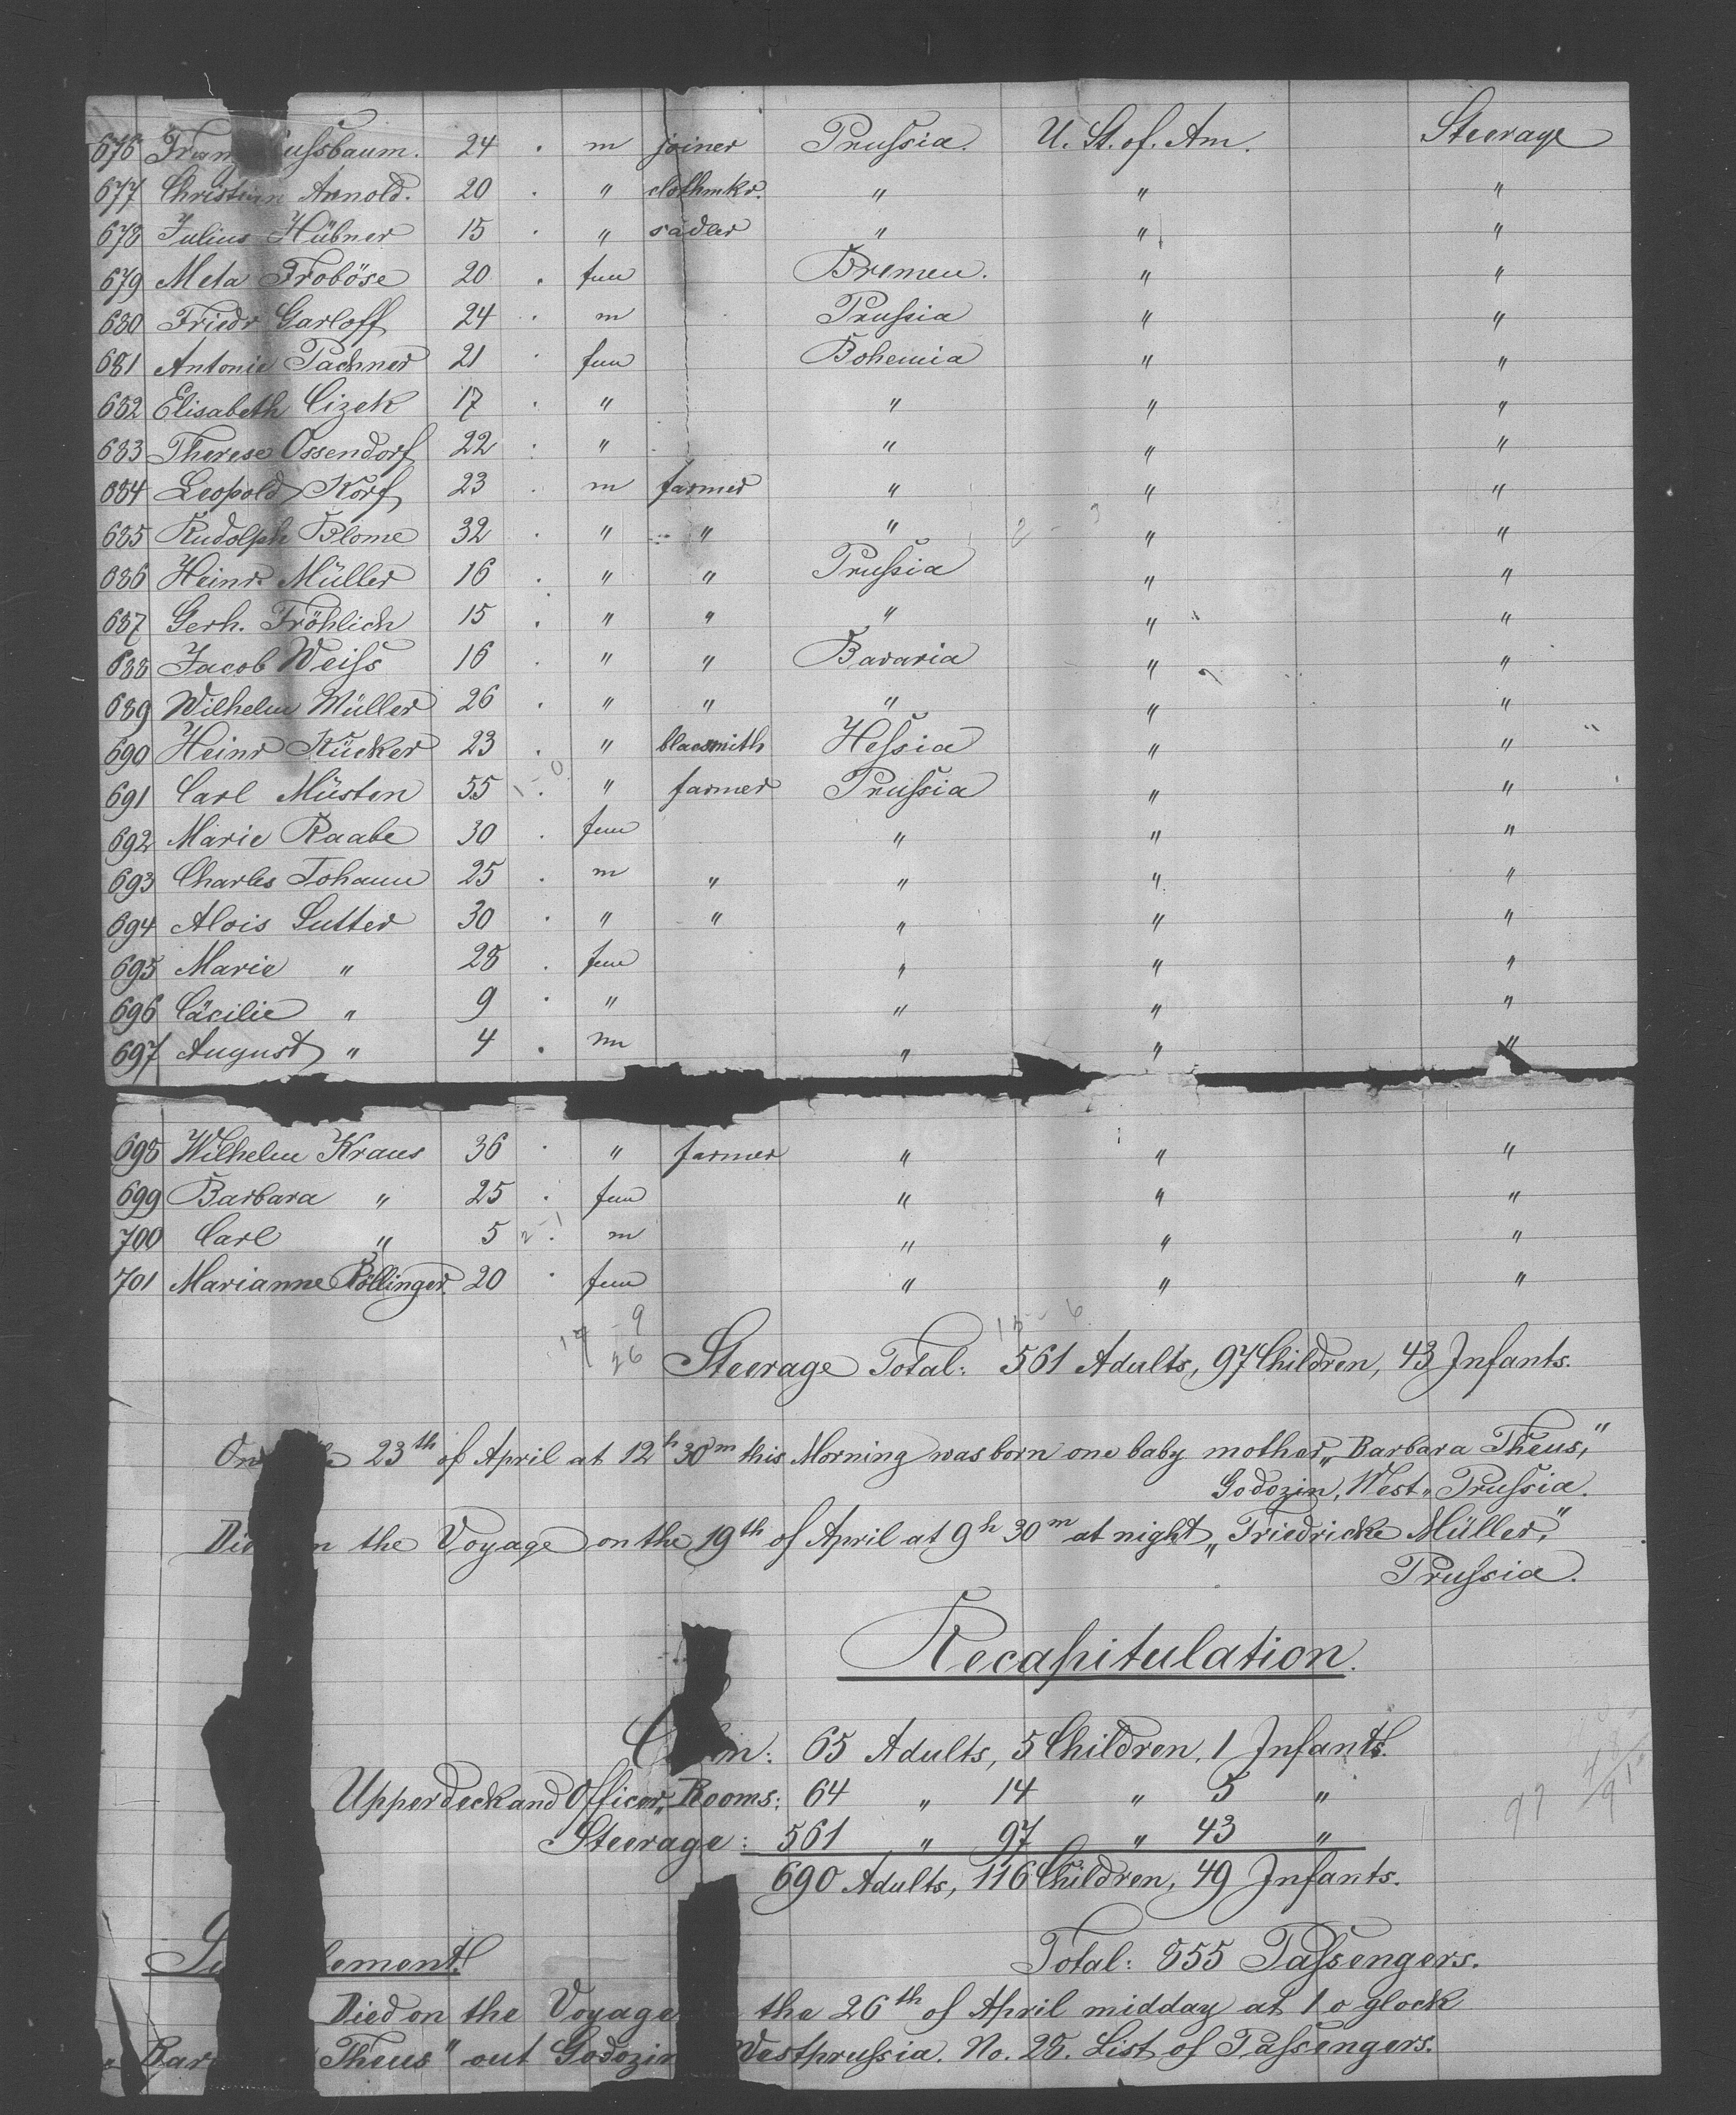 676 Fran ussbaum. 24 . m joiner Prussia. U. St. of. Am. Steerage
677 Christian Arnold. 20 . " clothmkr. " " "
678 Julius Hübner 15 . " sadler " " "
679 Meta Froböse 20 . fem Bremen. " "
680 Friedr Garloff 24 . m Prussia " "
681 Antonie Pachner 21 . fem Bohemia " "
682 Elisabeth Cizek 17 . " " " "
683 Therese Ossendorf 22 . " " " "
684 Leopold Korf 23 . m farmer " " "
685 Rudolph Blome 32 . " " " " "
686 Heinr. Müller 16 . " " Prussia " "
687 Gerh. Fröhlich 15 . " " " " "
688 Jacob Weiss 16 . " " Bavaria " "
689 Wilhelm Müller 26 . " " " " "
690 Heinr Kücker 23 . " blacsmith Hessia " "
691 Carl Müsten 55 . " farmer Prussia " "
692 Marie Raabe 30 . fem " " "
693 Charles Johann 25 . m " " " "
694 Alois Sutter 30 . " " " " "
695 Marie " 28 . fem " " "
696 Cäcilie " 9 . " " " "
697 August " 4 . m " " "
698 Wilhelm Kraus 36 . " farmer " " "
699 Barbara " 25 . fem " " "
700 Carl " 5 . m " " "
701 Marianne Böllinger 20 . fem " " "
Steerage Total: 561 Adults, 97 Children, 43 Infants.
On e 23th of April at 12h 30m this Morning was born one baby mother „Barbara Theus,"
Godozin, West„ Prussia.
Die n the Voyage on the 19th of April at 9h 30m at night „Friedricke Müller,"
Prussia.
Recapitulation.
C in: 65 Adults, 5 Children, 1 Infants.
Upperdeck and Officer„ Rooms: 64 " 14 " 5 "
Steerage: 561 " 97 " 43 "
690 Adults, 116 Children, 49 Infants.
Su lement.
Total: 855 Passengers.
Died on the Voyage the 26th of April midday at 1 o glock
„Bar Theus" out Godozin Westprussia. No. 28. List of Passengers.